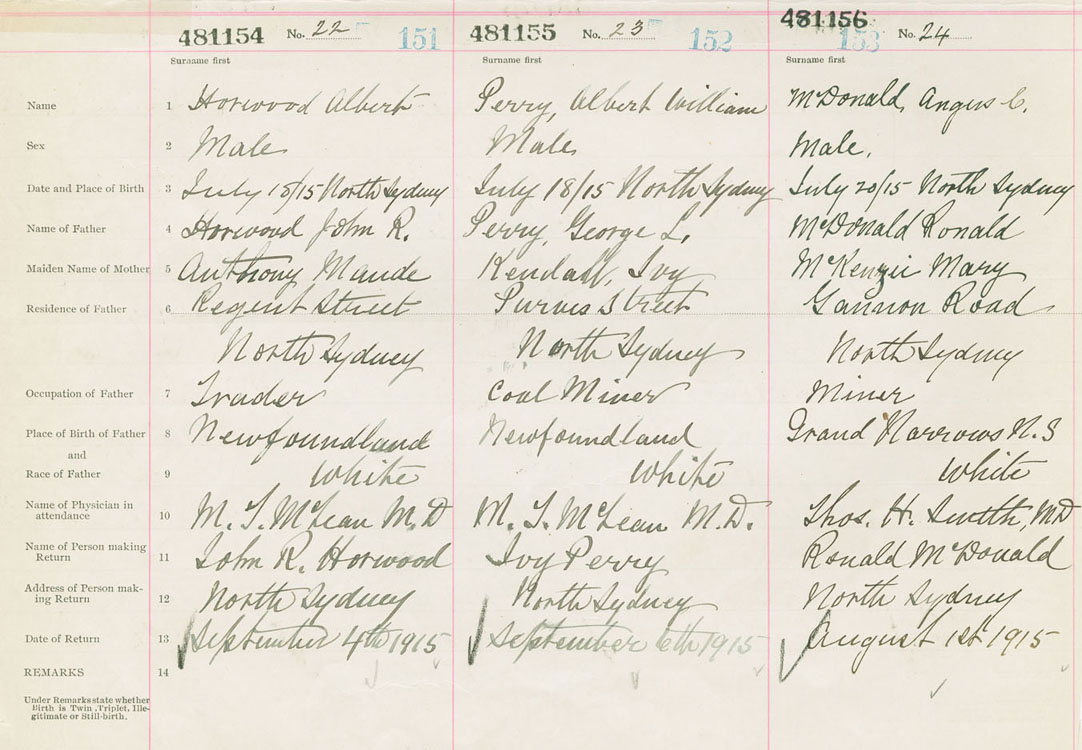 481154 No. 22 151 481155 No. 23 152 481156 153 No. 24
Surname first Surname first Surname first
Name 1 Horwood Albert Perry, Albert William McDonald, Angus C.
Sex 2 Male Male Male.
Date and Place of Birth 3 July 18/15 North Sydney July 18/15 North Sydney July 20/15 North Sydney
Name of Father 4 Horwood John R. Perry, George L. McDonald Ronald
Maiden Name of Mother 5 Anthony Maude Kendall, Ivy McKenzie Mary
Residence of Father 6 Regent Street Purves Street Gannon Road
North Sydney North Sydney North Sydney
Occupation of Father 7 Trader Coal Miner Miner
Place of Birth of Father 8 Newfoundland Newfoundland Grand Narrows N.S
and
Race of Father 9 White White White
Name of Physician in
attendance 10 M. T. McLean M.D M. T. McLean M.D. Thos. H. Smith, MD
Name of Person making
Return 11 John R. Horwood Ivy Perry Ronald McDonald
Address of Person mak-
ing Return 12 North Sydney North Sydney North Sydney
Date of Return 13 September 4th 1915 September 6th 1915 August 1st 1915
REMARKS 14
Under Remarks state whether
Birth is Twin, Triplet, Ille-
gitimate or Still-birth.